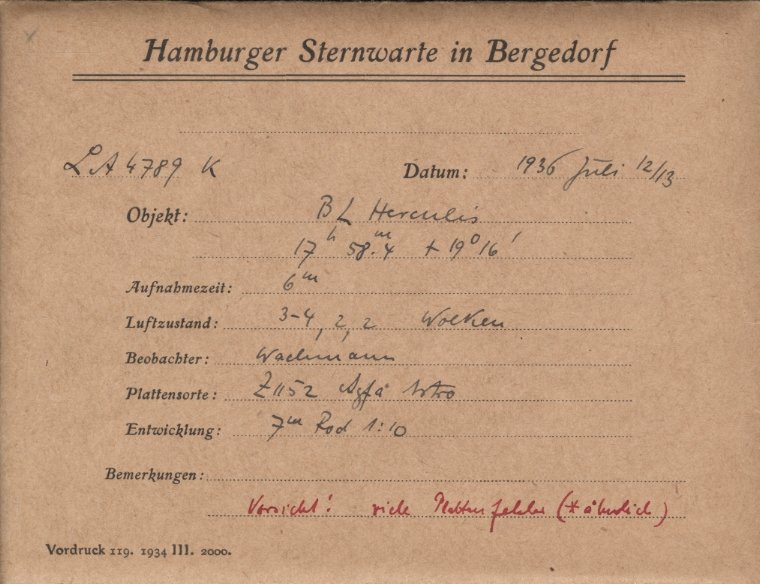 Hamburger Sternwarte in Bergedorf
LA 4789 K Datum: 1936 Juli 12/13
Objekt: BL Herculis
17ʰ 58.ᵐ4 + 19⁰ 16'
Aufnahmezeit: 6ᵐ
Luftzustand: 3-4, 2, 2 Wolken
Beobachter: Wachmann
Plattensorte: Z1152 Agfa Astro
Entwicklung: 7ᵐ Rod 1:10
Bemerkungen:
Vorsicht! viele Plattenfehler (* ähnlich)
Vordruck 119. 1934 III. 2000.